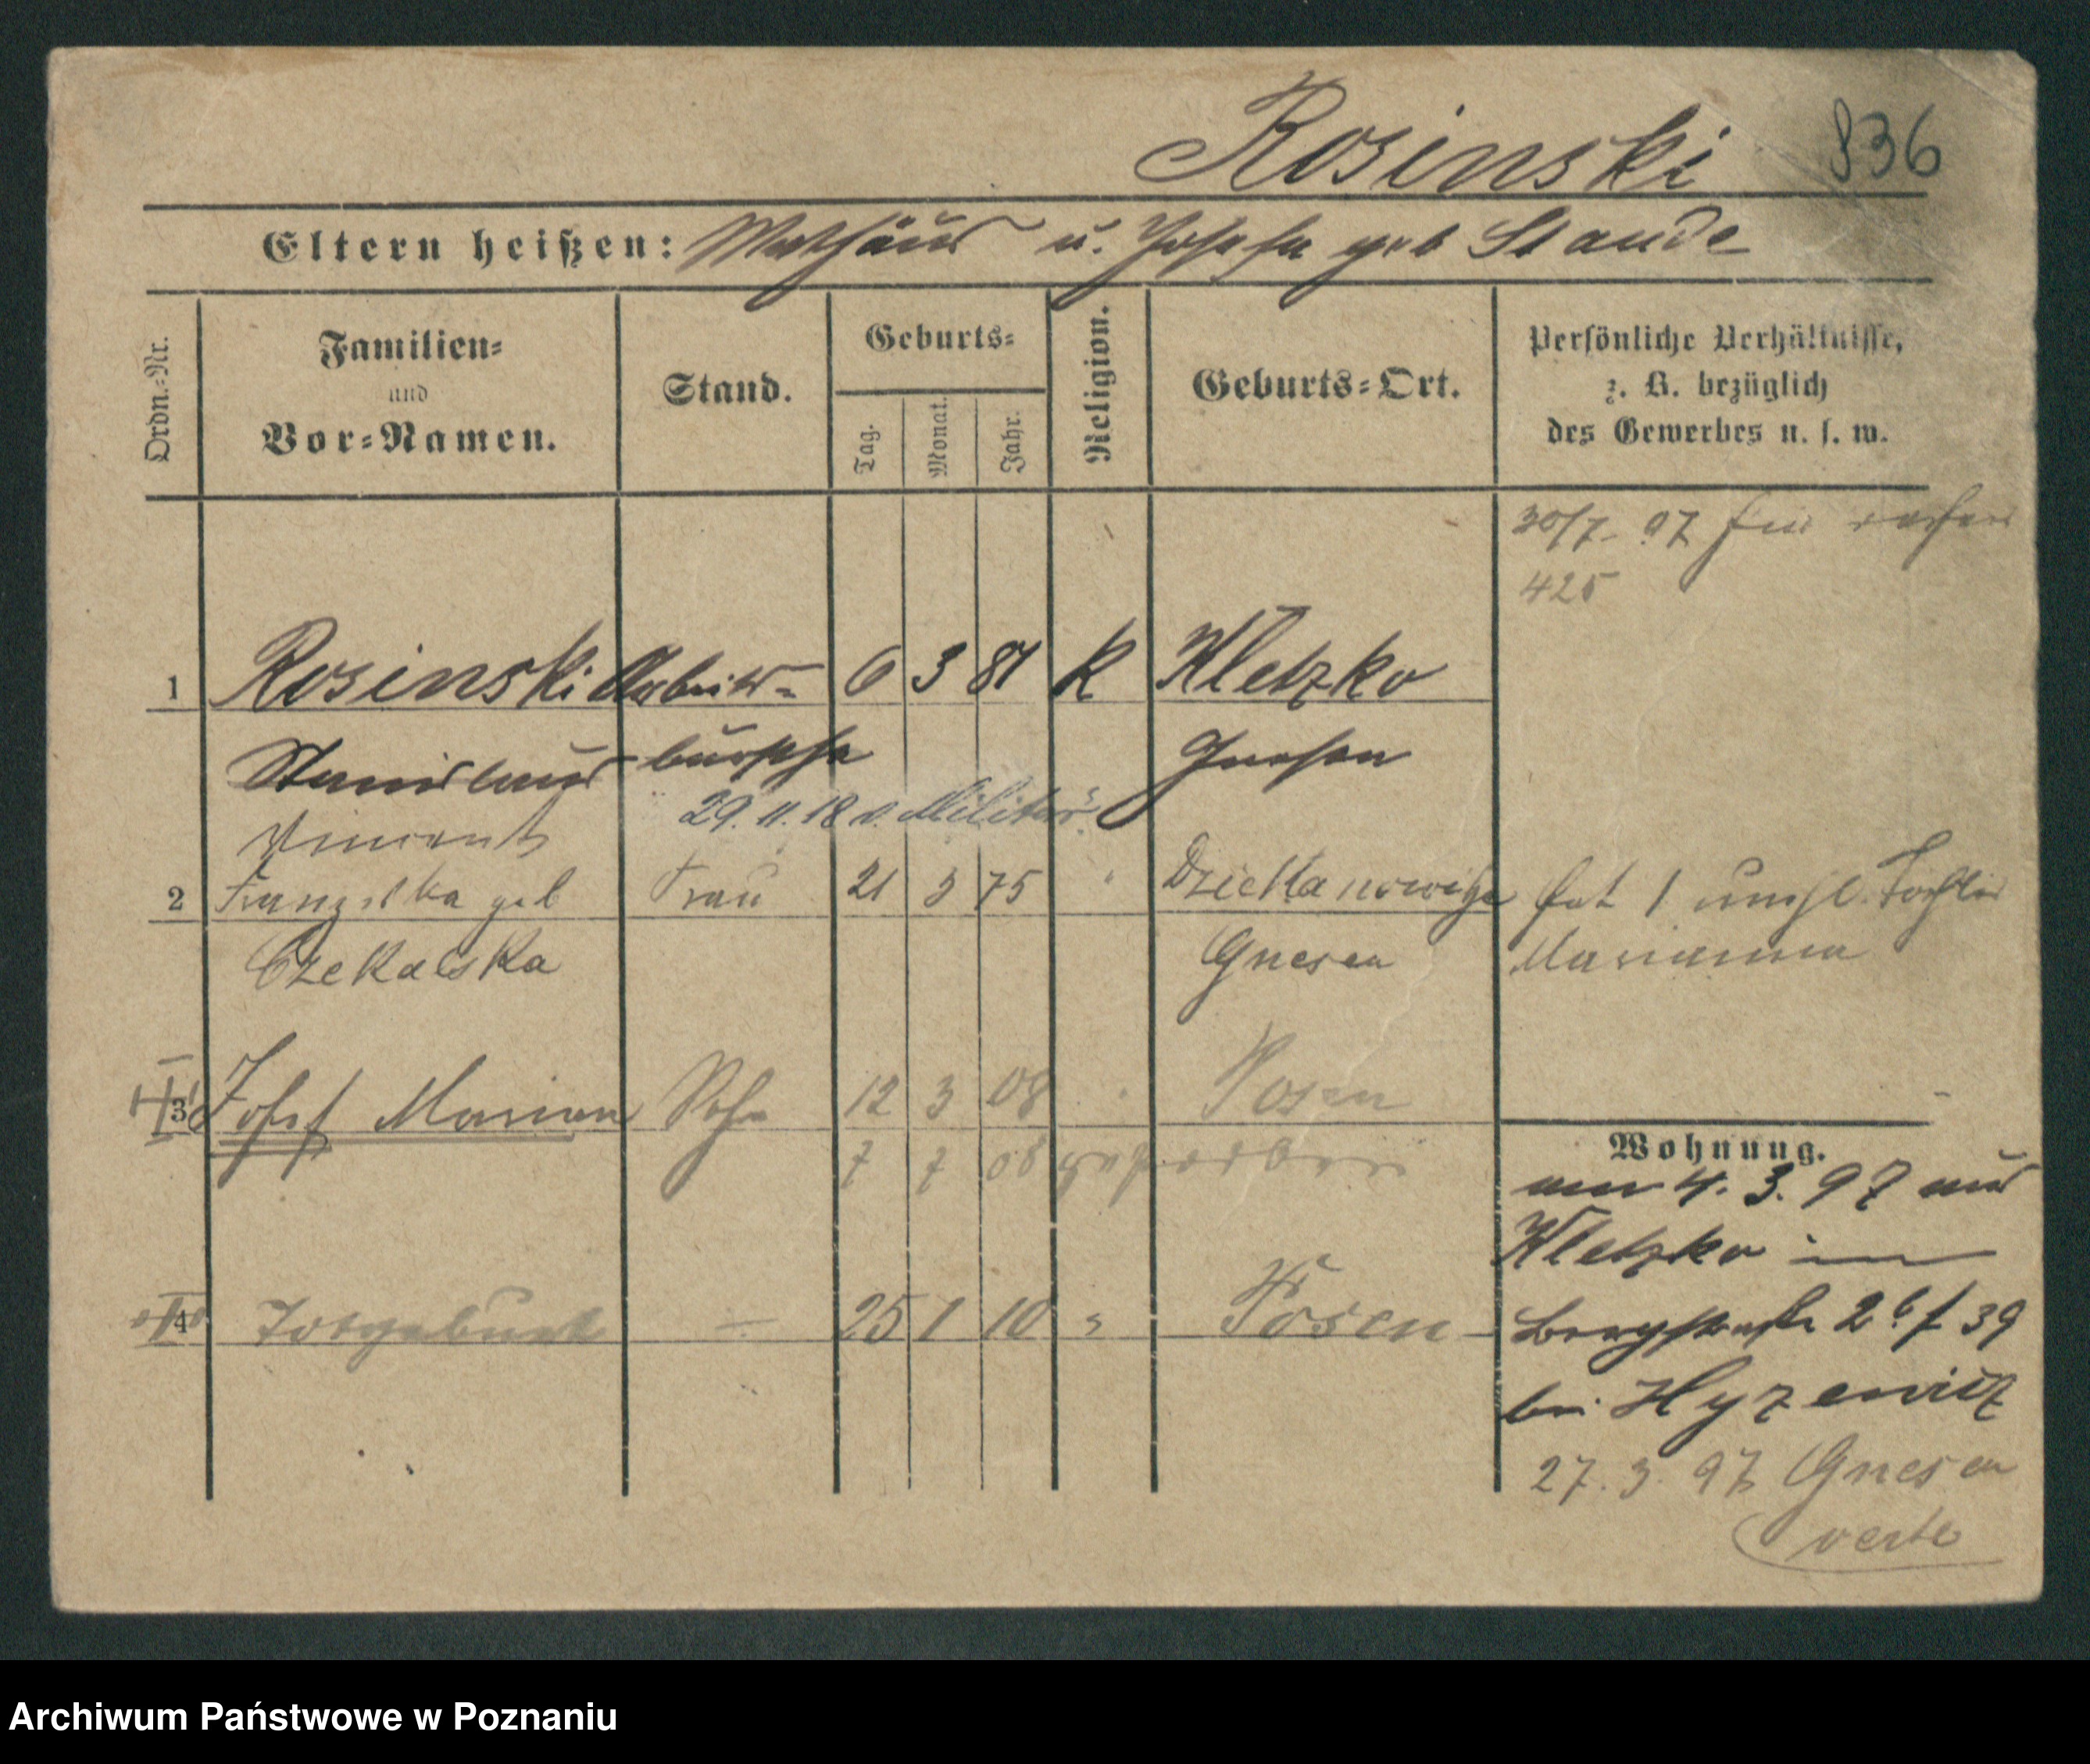 Rosinski 836
Eltern heißen: Mathäus u. Josefa geb Staude
Ordn.=Nr.
Familien=
und
Vor=Namen.
Stand.
Geburts=
Tag.
Monat.
Jahr.
Religion.
Geburts=Ort.
Persönliche Verhältnisse,
z. B. bezüglich
des Gewerbes u. s. w.
30/7. 97
425
1 Rosinski Arbeits= 6 3 81 K Kletzko
Stanislaus bursche Gnesen
Vincent 29.11.18 v. Militär
2 Franziska geb Frau 21 3 75 " Dziekanowitze hat 1 unehl. Tochter
Czekalska Gnesen Marianna
3 Josef Marian Sohn 12 3 08 " Posen
7 7 08 gestorben
4 Totgeburt — 25 1 10 " Posen
Wohnung.
am 4. 3. 97 aus
Kletzko in
Bergstraße 2b f 39
bei Hyzewicz
27. 3. 97 Gnesen
verte
Archiwum Państwowe w Poznaniu